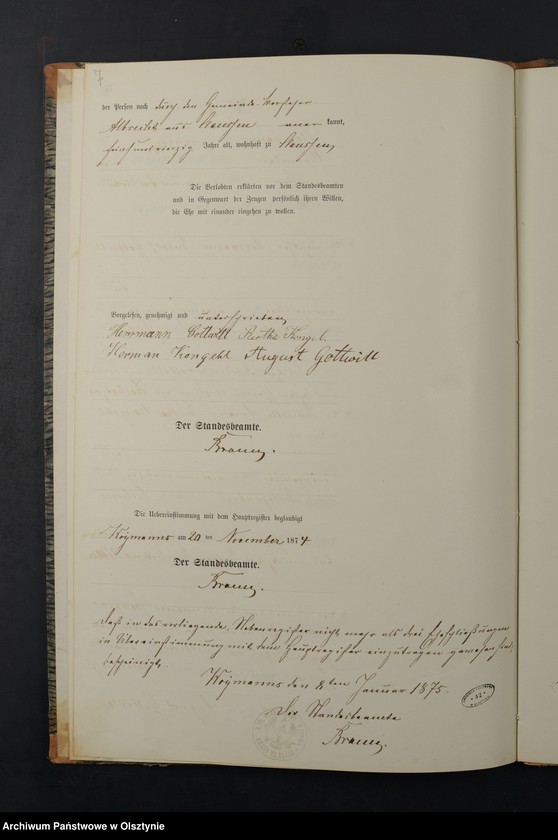 7
der Person nach durch den Gemeinde-Vorsteher
Albrecht aus kannt,
fünfundvierzig Jahre alt, wohnhaft zu
Die Verlobten erklärten vor dem Standesbeamten
und in Gegenwart der Zeugen persönlich ihren Willen,
die Ehe mit einander eingehen zu wollen.
Vorgelesen, genehmigt und unterschrieben,
Herrmann Gottwill
Herman Kongehl August Gottwill
Der Standesbeamte.
Die Uebereinstimmung mit dem Hauptregister beglaubigt
Koymanns am 20 ten November 1874
Der Standesbeamte.
Daß in das vorliegende Nebenregister nicht mehr als drei Eheschließungen
in Übereinstimmung mit dem Hauptregister einzutragen gewesen sind,
bescheinigt,
Koymanns den 8ten Januar 1875.
Der Standesbeamte
Archiwum Państwowe w Olsztynie